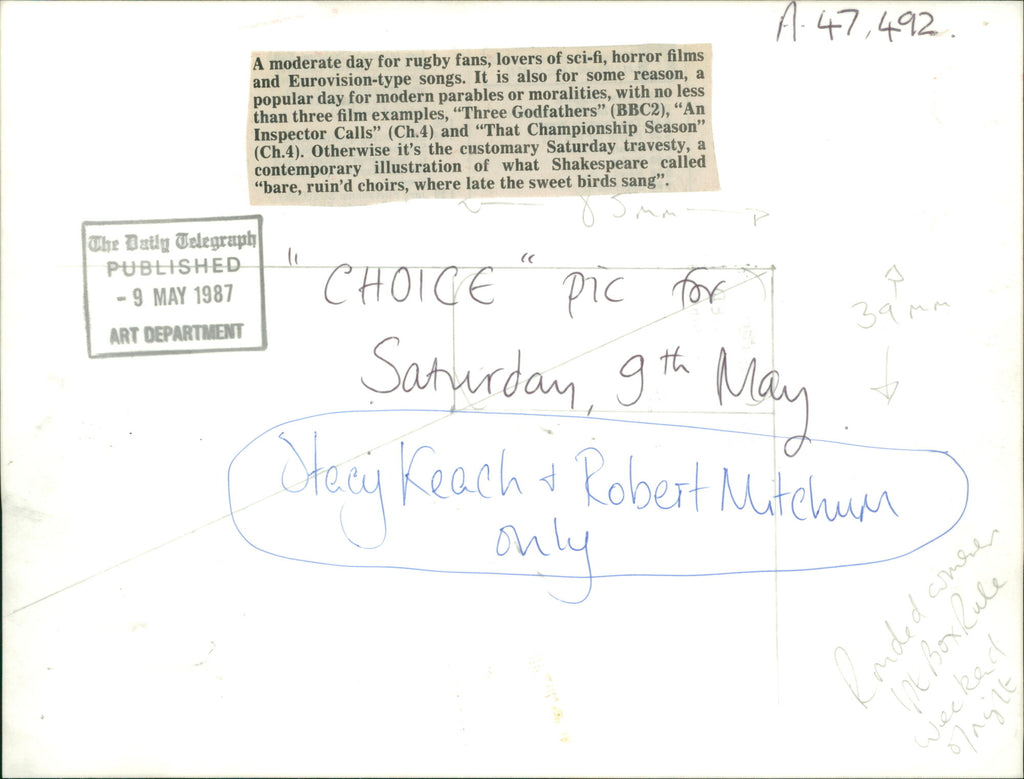 A. 47,492.
A moderate day for rugby fans, lovers of sci-fi, horror films
and Eurovision-type songs. It is also for some reason, a
popular day for modern parables or moralities, with no less
than three film examples, “Three Godfathers” (BBC2), “An
Inspector Calls” (Ch.4) and “That Championship Season”
(Ch.4). Otherwise it’s the customary Saturday travesty, a
contemporary illustration of what Shakespeare called
“bare, ruin’d choirs, where late the sweet birds sang”.
85mm
The Daily Telegraph
PUBLISHED
- 9 MAY 1987
ART DEPARTMENT
"CHOICE" pic for
39mm
Saturday, 9th May
Stacy Keach + Robert Mitchum
only
Rounded corners
Box Rule